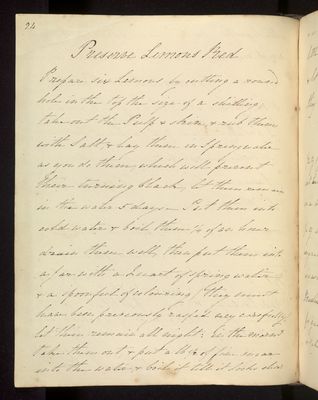 24
Preserve Lemons Red
Prepare six Lemons by cutting a round
hole in the top the size of a shilling,
take out the Pulp & skin, & rub them
with Salt & lay them in Spring water
as you do them, which will prevent
their turning black, let them remain
in the water 5 days. Put them into
cold water & boil them ¼ of an hour
drain them well, then put them into
a jar with a Quart of spring water
& a spoonful of colouring, they must
have been previously rasped very carefully
let them remain all night: in the morn
take them out & put a lb of fine sugar
into the water & boil it till it looks clear